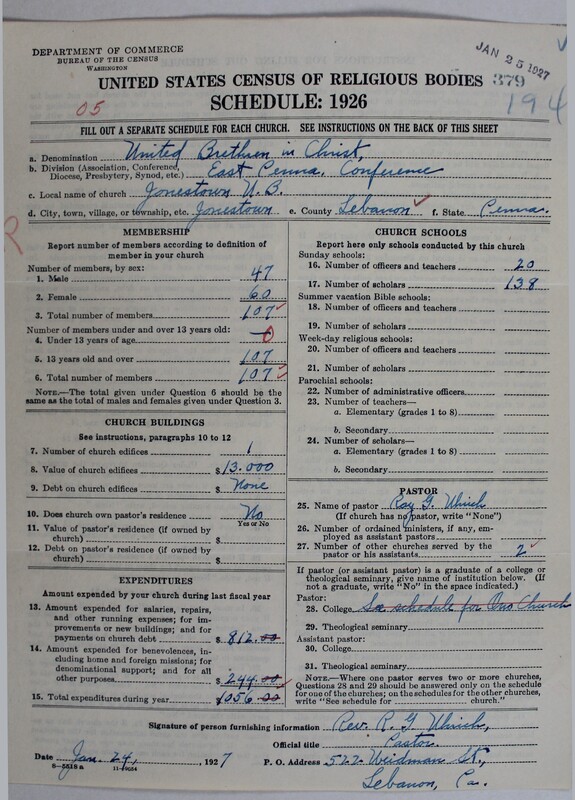 DEPARTMENT OF COMMERCE
BUREAU OF THE CENSUS
WASHINGTON
JAN 25 1927
UNITED STATES CENSUS OF RELIGIOUS BODIES 379
SCHEDULE: 1926
194
05
FILL OUT A SEPARATE SCHEDULE FOR EACH CHURCH. SEE INSTRUCTIONS ON THE BACK OF THIS SHEET
a. Denomination United Brethren in Christ,
b. Division (Association, Conference, Diocese, Presbytery, Synod, etc.) East Penna. Conference
c. Local name of church Jonestown U.B.
d. City, town, village, or township, etc. Jonestown e. County Lebanon f. State Penna.
R
MEMBERSHIP
Report number of members according to definition of member in your church
Number of members, by sex:
1. Male 47
2. Female 60
3. Total number of members 107
Number of members under and over 13 years old:
4. Under 13 years of age 0
5. 13 years old and over 107
6. Total number of members 107
NOTE.—The total given under Question 6 should be the same as the total of males and females given under Question 3.
CHURCH BUILDINGS
See instructions, paragraphs 10 to 12
7. Number of church edifices 1
8. Value of church edifices $13.000
9. Debt on church edifices $ None
10. Does church own pastor's residence? No
Yes or No
11. Value of pastor's residence (if owned by church) $
12. Debt on pastor's residence (if owned by church) $
EXPENDITURES
Amount expended by your church during last fiscal year
13. Amount expended for salaries, repairs, and other running expenses; for improvements or new buildings; and for payments on church debt $ 812.00
14. Amount expended for benevolences, including home and foreign missions; for denominational support; and for all other purposes $ 244.00
15. Total expenditures during year $1056 00
CHURCH SCHOOLS
Report here only schools conducted by this church
Sunday schools:
16. Number of officers and teachers 20
17. Number of scholars 138
Summer vacation Bible schools:
18. Number of officers and teachers
19. Number of scholars
Week-day religious schools:
20. Number of officers and teachers
21. Number of scholars
Parochial schools:
22. Number of administrative officers
23. Number of teachers—
a. Elementary (grades 1 to 8)
b. Secondary
24. Number of scholars—
a. Elementary (grades 1 to 8)
b. Secondary
PASTOR
25. Name of pastor Ray G. Ulrich
(If church has no pastor, write "None")
26. Number of ordained ministers, if any, employed as assistant pastors
27. Number of other churches served by the pastor or his assistants 2
If pastor (or assistant pastor) is a graduate of a college or theological seminary, give name of institution below. (If not a graduate, write "No" in the space indicated.)
Pastor:
28. College See schedule for Ono Church
29. Theological seminary
Assistant pastor:
30. College
31. Theological seminary
NOTE.—Where one pastor serves two or more churches, Questions 28 and 29 should be answered only on the schedule for one of the churches; on the schedules for the other churches, write "See schedule for ........ church."
Signature of person furnishing information Rev. R. G. Ulrich,
Official title Pastor
Date Jan. 24, 1927 P. O. Address 522 Weidman St.,
8-5518 a
Lebanon, Pa.